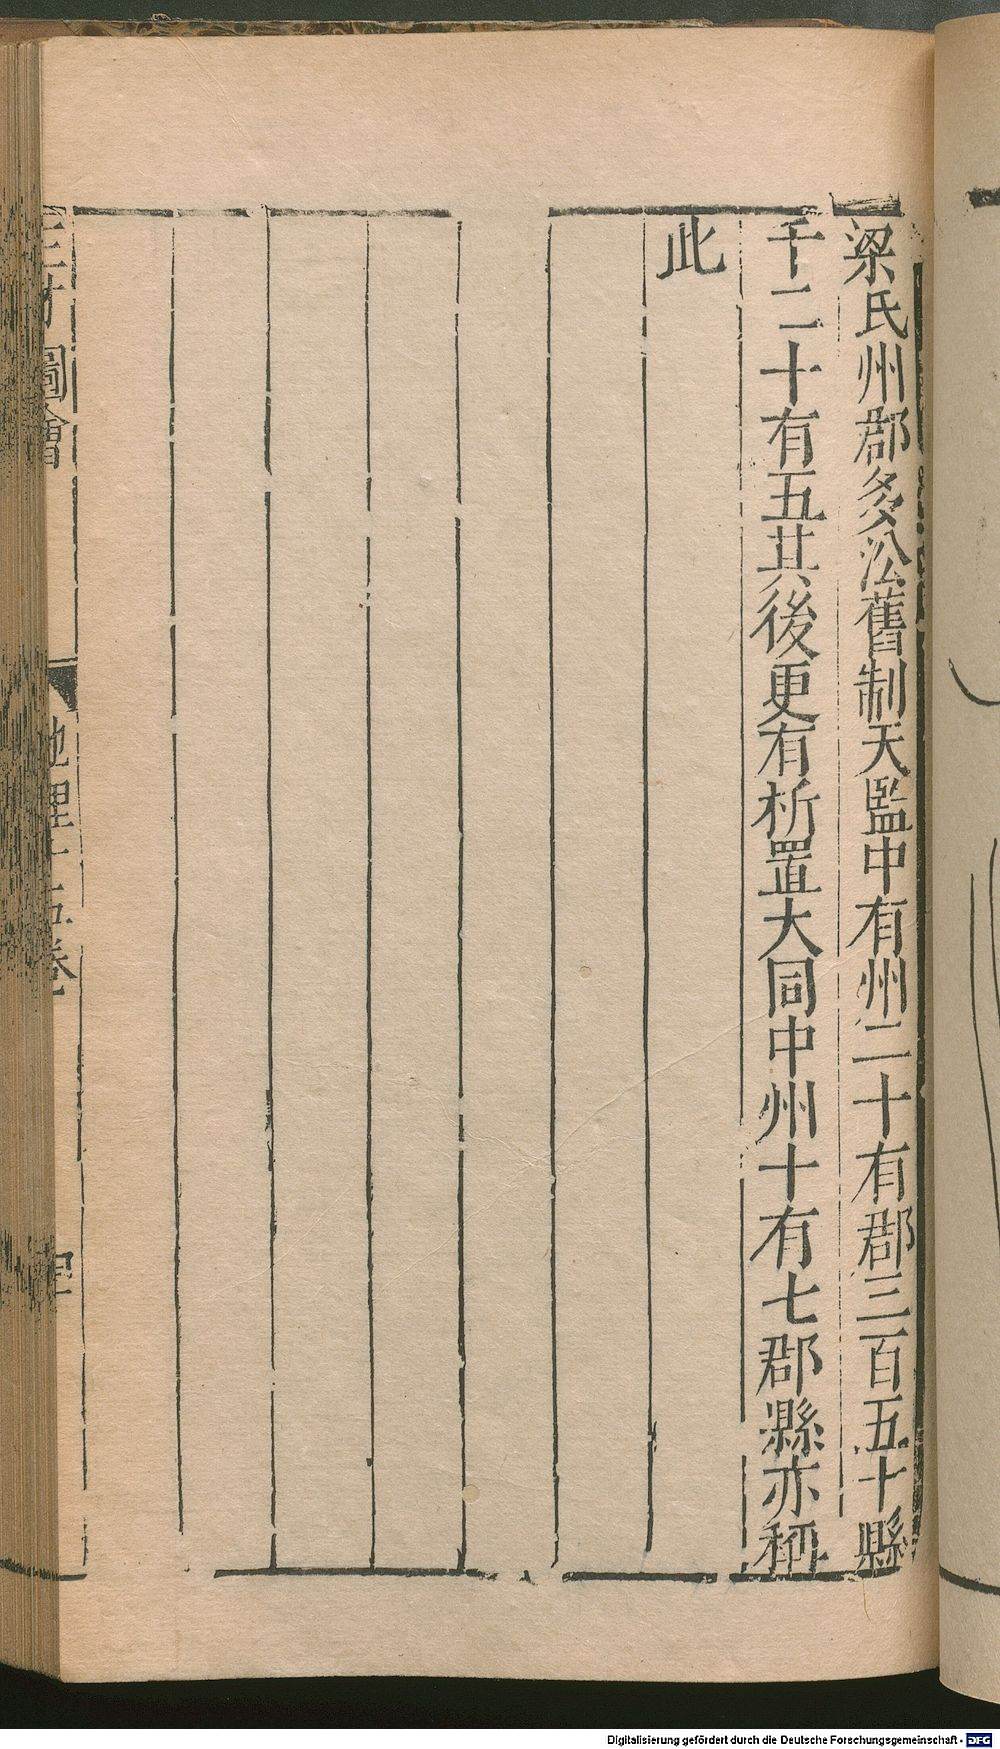 梁氏州郡多沿舊制天監中有州二十有郡三百五十縣
千二十有五其後更有析置大同中州十有七郡縣亦稱
此
三才圖會
地理十五卷
Digitalisierung gefördert durch die Deutsche Forschungsgemeinschaft - DFG